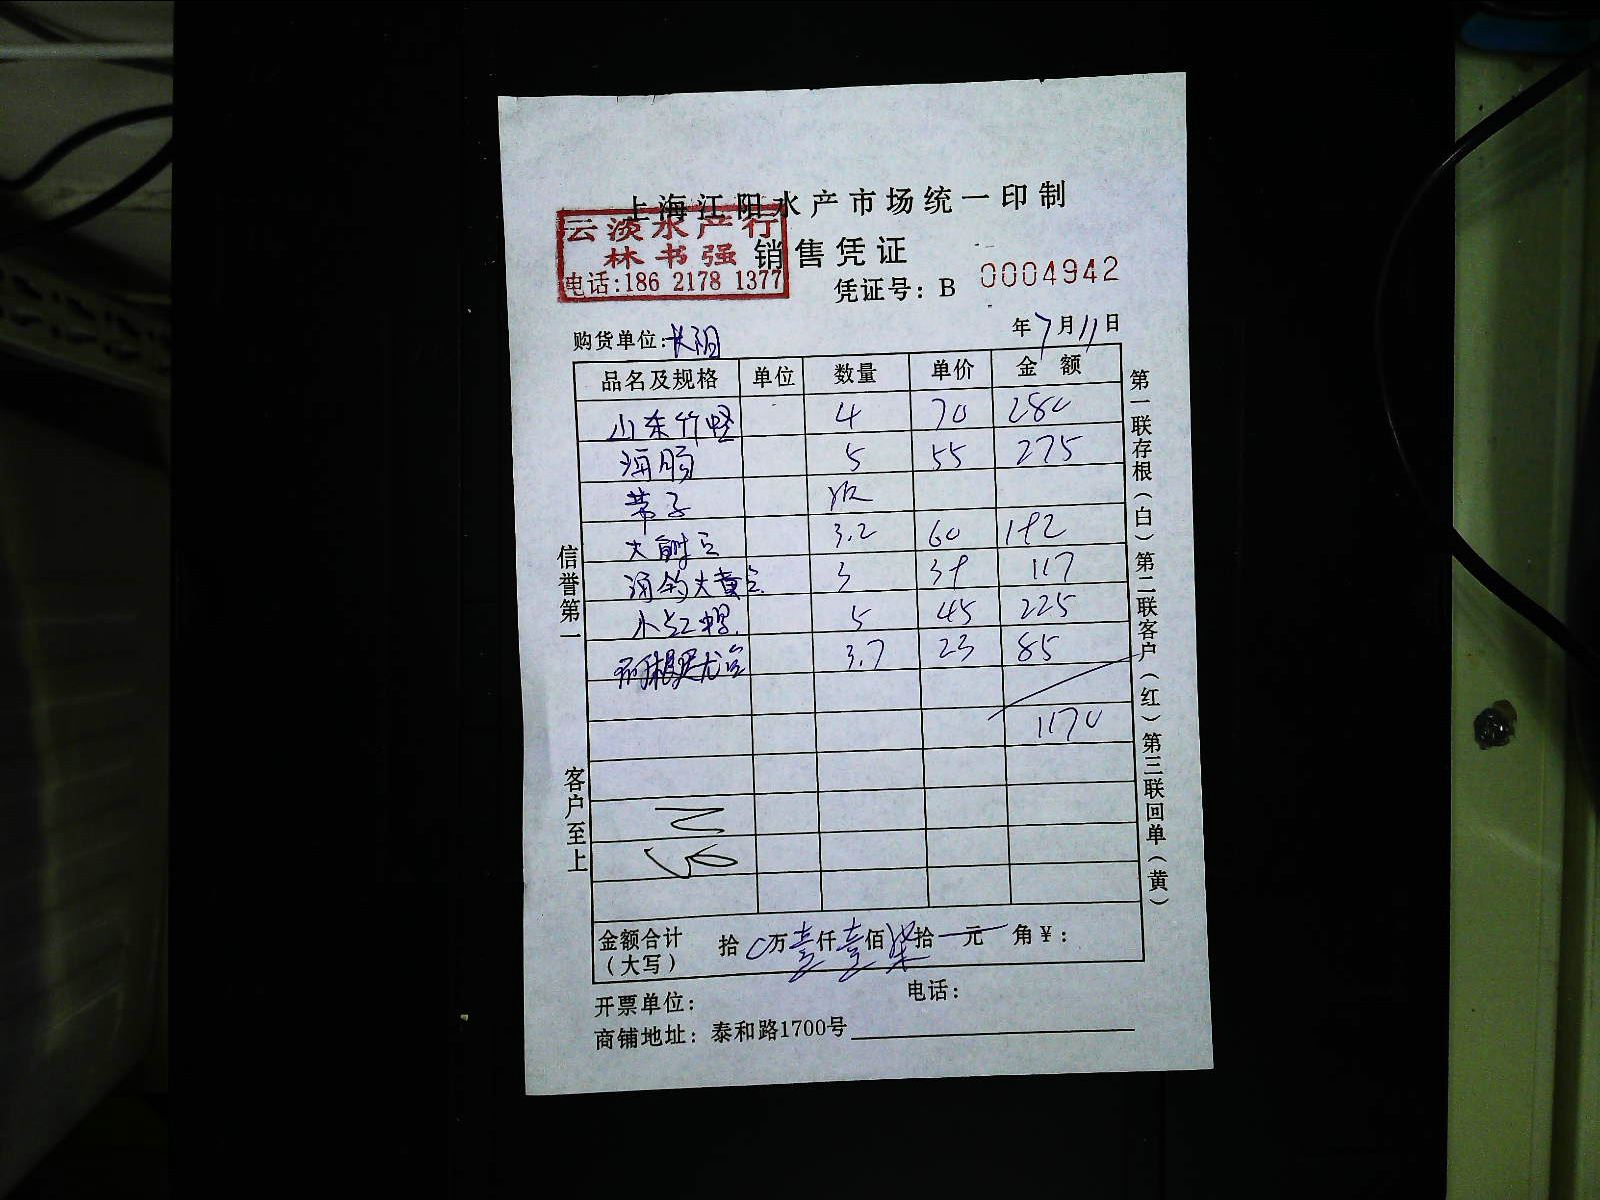 上海江阳水产市场统一印制
云淡水产行
林书强
电话:186 2178 1377
销售凭证
凭证号: B 0004942
购货单位:长阳
年7月11日
品名及规格 单位 数量 单价 金额
山东竹蛏 4 70 280
海肠 5 55 275
带子
大 3.2 60 192
大黄 3 39 117
小 5 45 225
3.7 23 85
1170
金额合计(大写) 拾 0万壹仟壹佰柒拾 元 角¥:
开票单位: 电话:
商铺地址: 泰和路1700号
信誉第一
客户至上
第一联存根(白)第二联客户(红)第三联回单(黄)